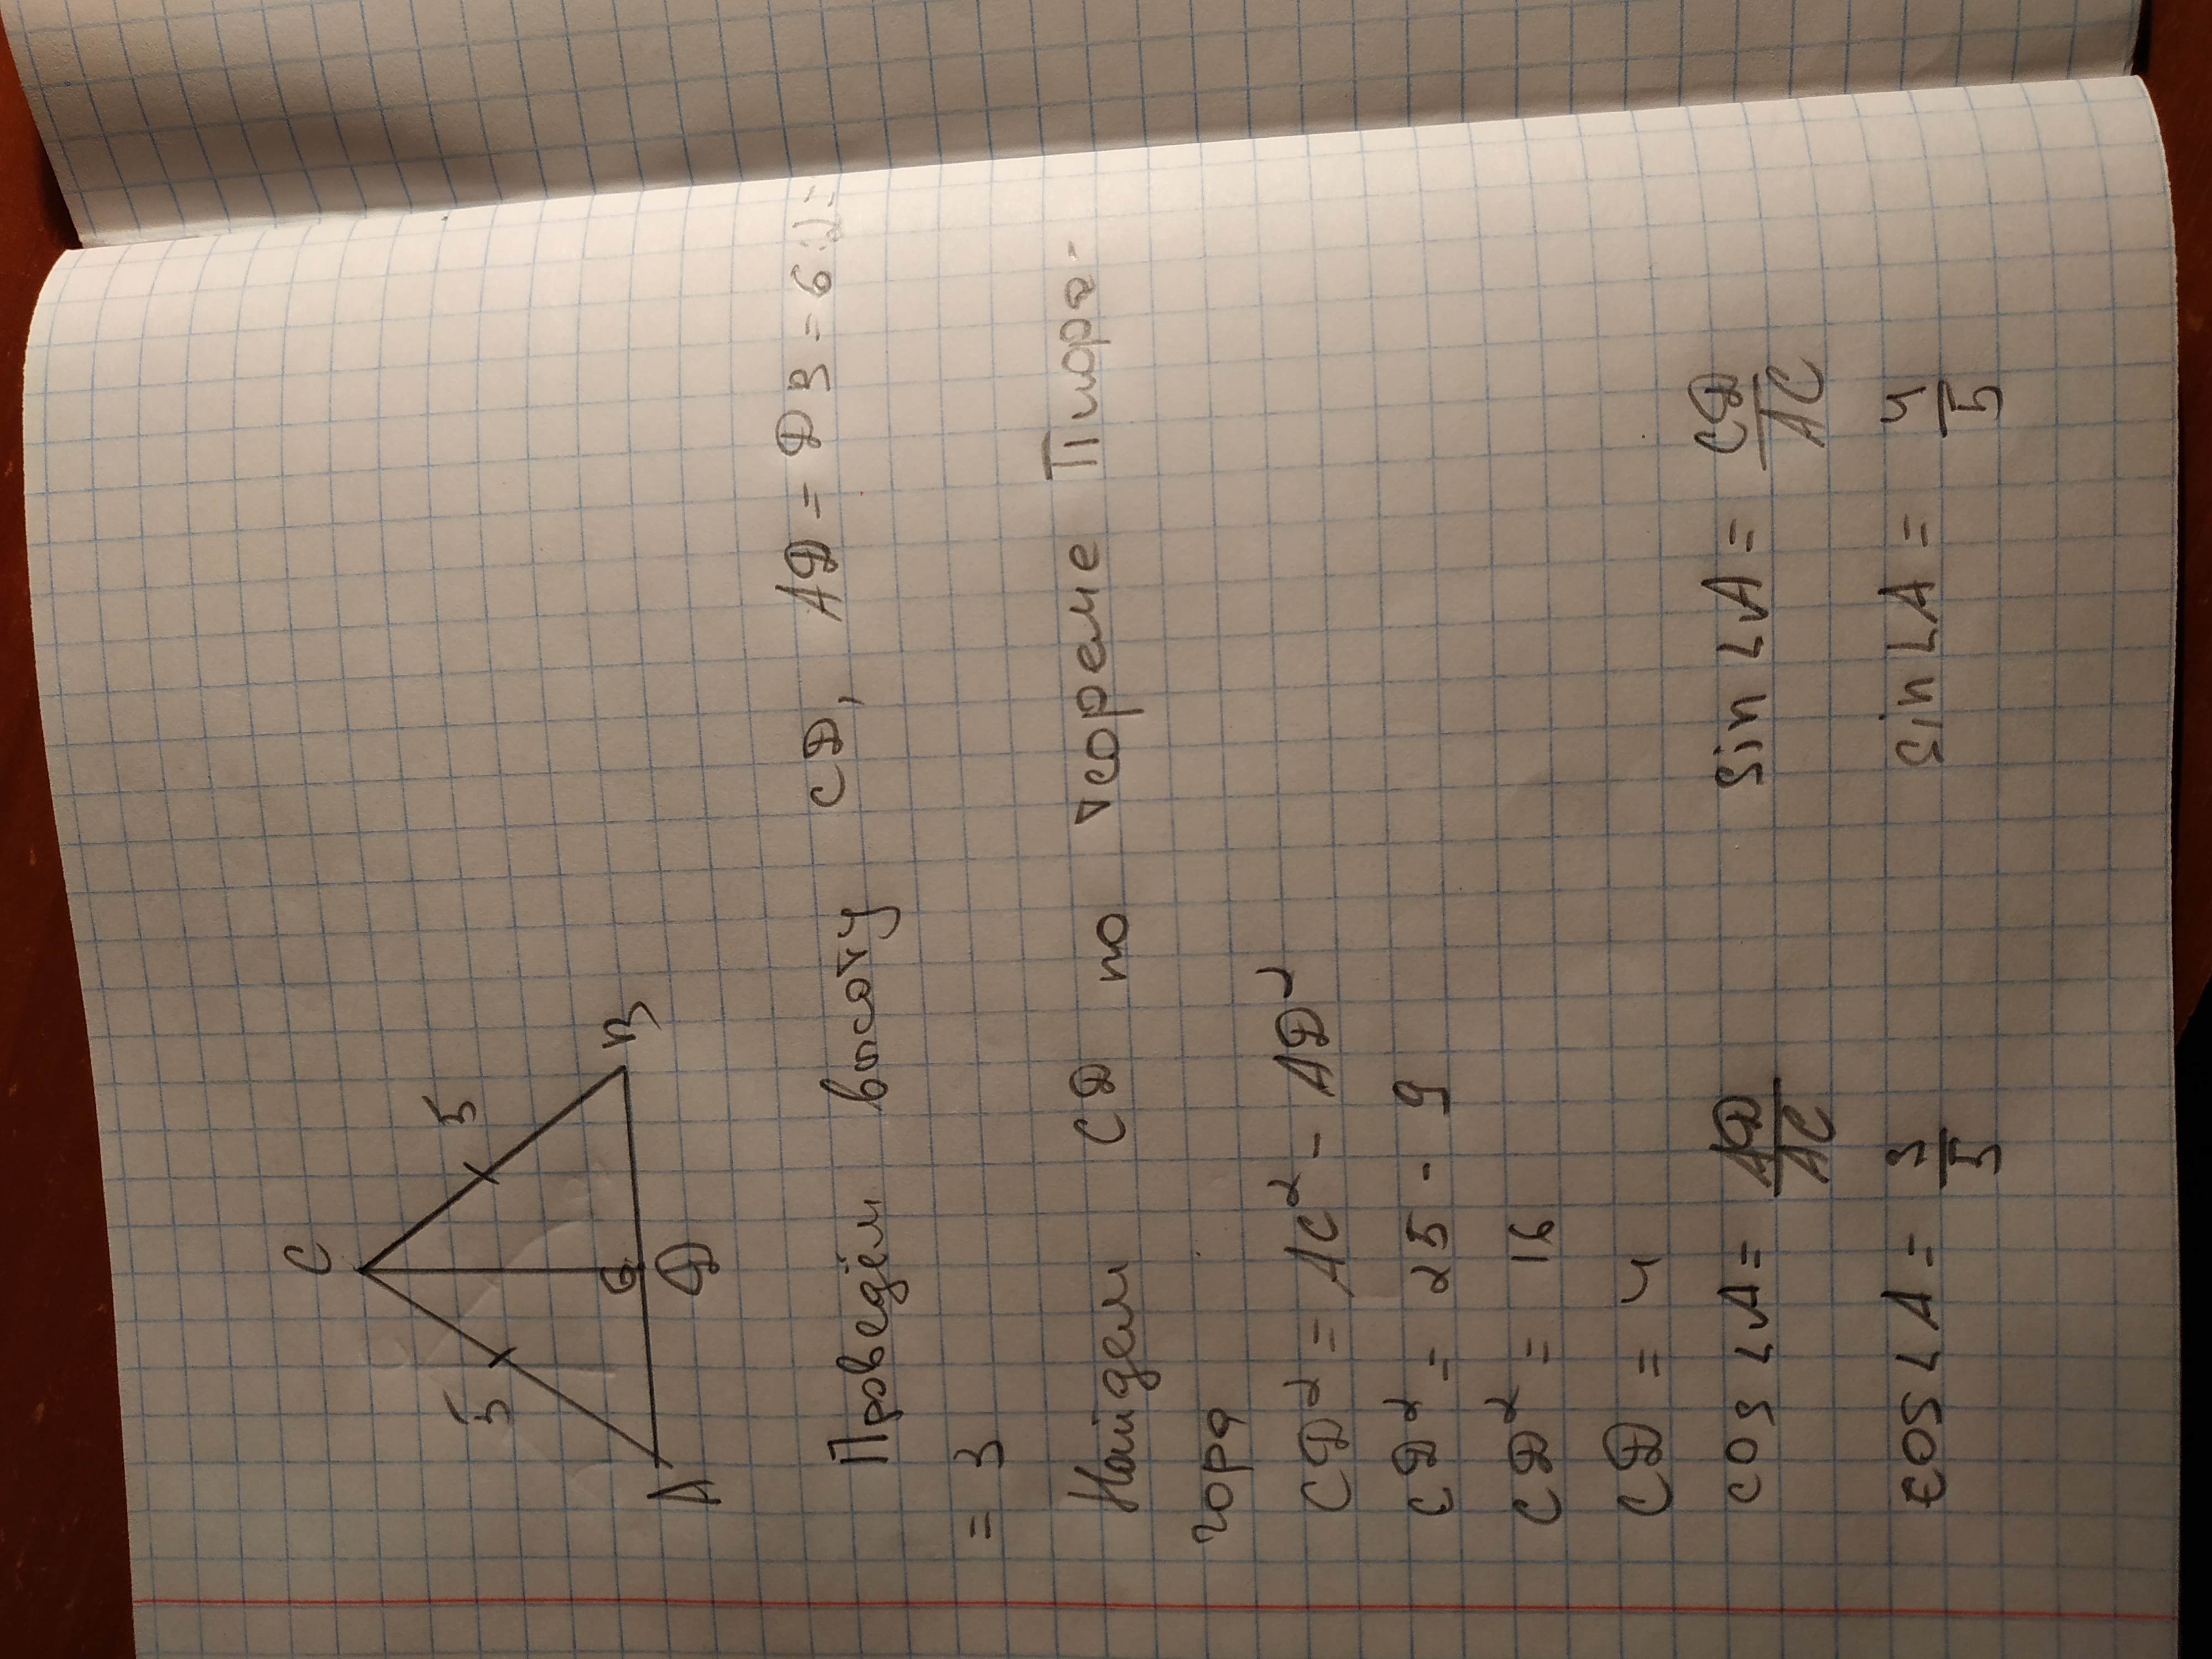 C
5 5
6
A D B
Проведём высоту CD, AD = DB = 6:2=
= 3
Найдем CD по теореме Пифа-
гора
CD² = AC² - AD²
CD² = 25 - 9
CD² = 16
CD = 4
cos ∠A = AD/AC sin ∠A = CD/AC
cos ∠A = 3/5 sin ∠A = 4/5